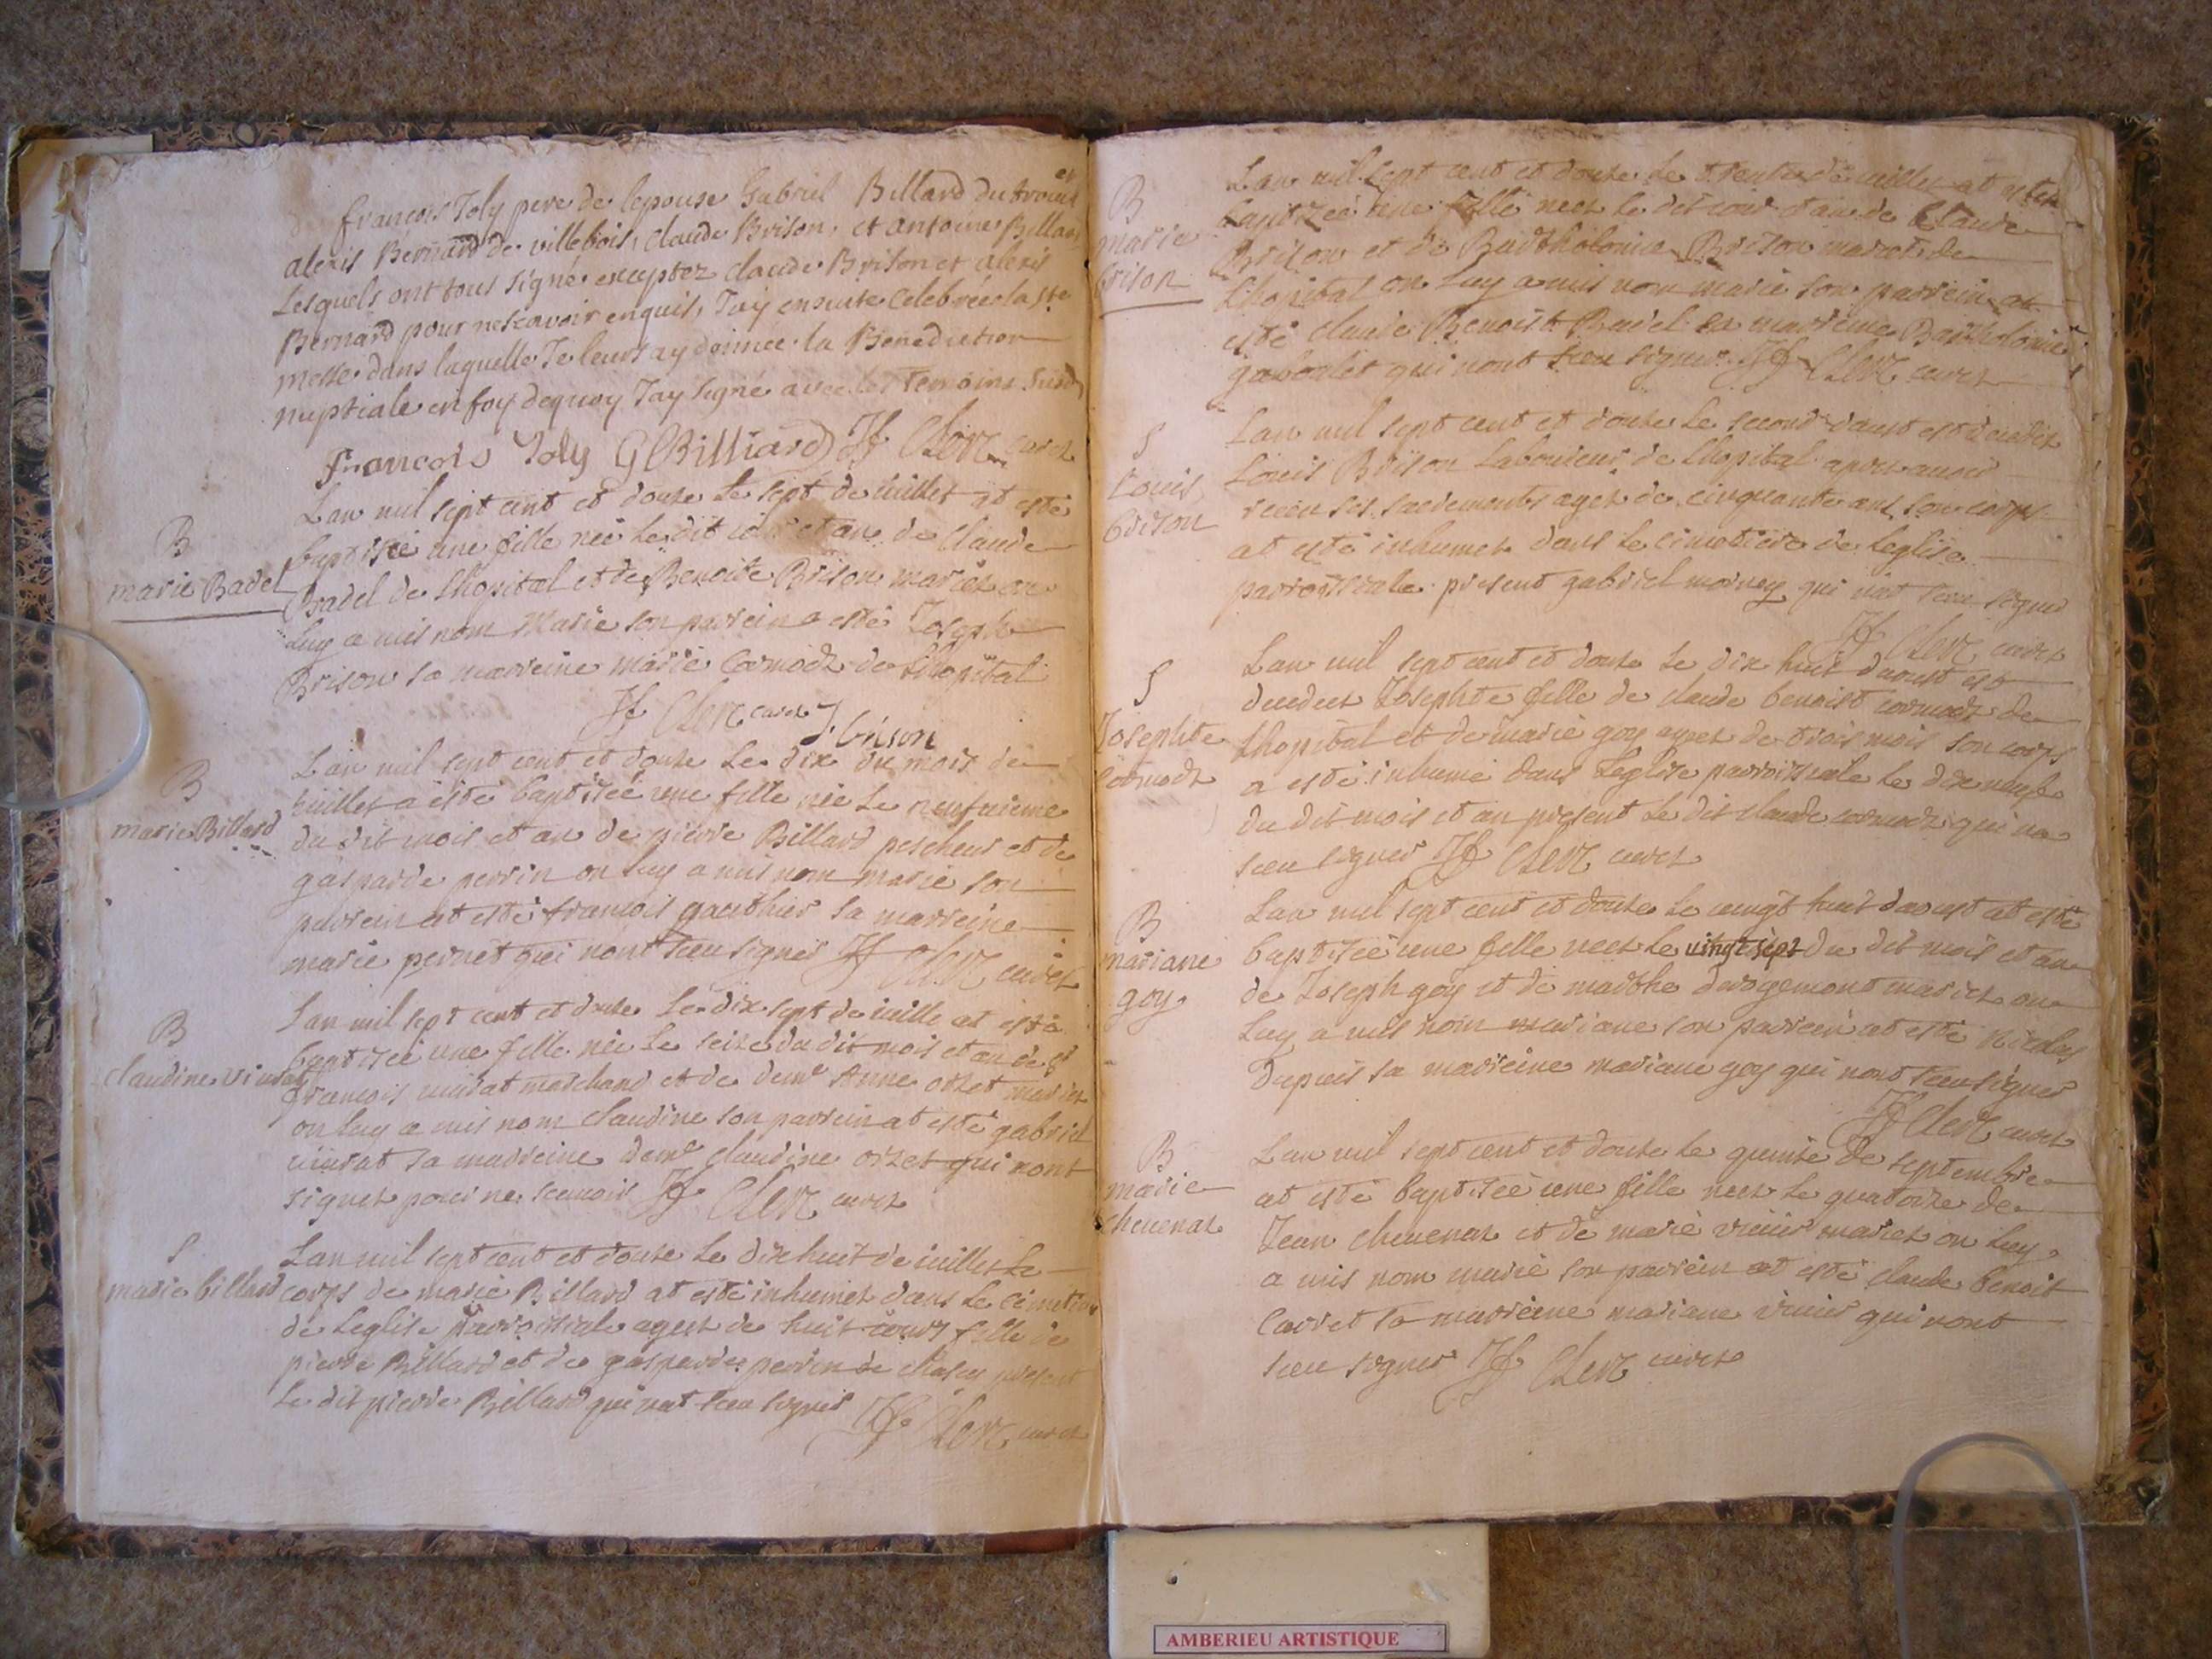 françois Joly pere de lepouse Gabriel Billard du
et
alexis Bernard de villebois, claude Brison, et antoine Billard
Lesquels ont tous signé exceptez claude Brison et alexis
Bernard pour ne scavoir enquis, Jay ensuite celebrée la ste
messe dans laquelle Je leurs ay donnée la Benediction
nuptiale en foy dequoy Jay signé avec les temoins susd
françois Joly G Billiard Jf Clerc curez
B
marie Badel
Lan mil sept cent et douse Le sept de iuillet at esté
baptisée une fille née Le dit iour et an de Claude
Badel de Lhopital et de Benoite Brison mariez on
Luy a mis nom Marie son parrein a esté Joseph
Brison sa marreine marie Cormodz de Lhopital
Jf Clerc curez J. brison
B
marie Billard
Lan mil sept cent et douse Le dix du mois de
iuillet a esté baptisée une fille née Le neufuieme
du dit mois et an de pierre Billard pescheur et de
gasparde perrin on Luy a mis nom marie son
parrein at esté françois gauthier sa marreine
marie pernet qui nont sceu signer Jf Clerc curez
B
claudine
Lan mil sept cent et douse Le dix sept de iuille at esté
baptisée une fille née Le seize du dit mois et an de
françois marchand et de demle Anne orset mariez
on Luy a mis nom claudine son parrein at esté gabriel
sa marreine demle claudine orset qui nont
signez pour ne scauoir Jf Clerc curez
S
marie billard
Lan mil sept cent et douse Le dix huit de iuillet Le
corps de marie Billard at esté inhumez dans Le cemetiere
de Leglise parroissiale agest de huit iours fille de
pierre Billard et de gasparde perrin de present
Le dit pierre Billard qui nat sceu signer Jf Clerc curez
B
marie
brison
Lan mil sept cent et douse Le trente de iuillet at esté
baptizeé une fille neez le dit iour et an de Claude
Brison et de Bartholomie Brison mariez de
Lhopital on Luy a mis nom marie son parrein at
esté claude Benoist Badel sa marreine Bartholomie
qui nont sceu signer Jf Clerc curez
S
Louis
brison
Lan mil sept cent et douse Le second daust est decedez
Louis Brison Laboureur de Lhopital apres auoir
receu ses sacrements agez de cinquante ans son corps
at esté inhumez dans Le cimetiere de Leglise
parroissiale present gabriel qui nat sceu signer
Jf Clerc curez
S
Josephte
Cormodz
Lan mil sept cent et douse Le dix huit daoust est
decedeez Josephte fille de claude benoist cormodz de
Lhopital et de marie goy agez de trois mois son corps
a esté inhumé dans Leglise parroissiale Le dix neuf
du dit mois et an present Le dit claude cormodz qui na
sceu signer Jf Clerc curez
B
mariane
goy
Lan mil sept cent et douse Le vingt huit daoust at esté
baptisée une fille neez Le vingt sept du dit mois et an
de Joseph goy et de marthe mariez on
Luy a mis nom mariane son parrein at esté Nicolas
Dupuis sa marreine mariane goy qui nont sceu signer
Jf Clerc curez
B
marie
cheuenaz
Lan mil sept cent et douse Le quinse de septembre
at esté baptisée une fille neez Le quatorze de
Jean cheuenaz et de marie mariez on Luy
a mis nom marie son parrein at esté claude benoit
Carret sa marreine mariane qui nont
sceu signer Jf Clerc curez
AMBERIEU ARTISTIQUE